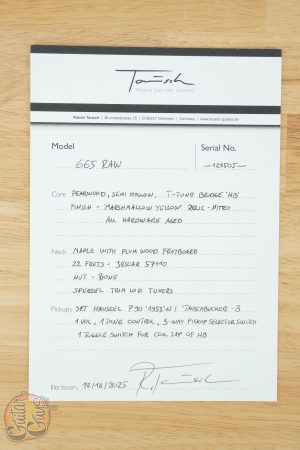 Tausch
TAUSCH ELECTRIC GUITARS
Rainer Tausch | Brunnenstrasse | Germany | www.tausch-guitars.de
Model
Serial No.
665 RAW
Core PEARWOOD, SEMI HOLLOW, T-TUNE BRIDGE 'HB'
FINISH - 'MARSHMALLOW YELLOW' RELIC - NITRO
ALL HARDWARE AGED
Neck MAPLE WITH PLUM WOOD FRETBOARD
22 FRETS - JESCAR 57110
NUT - BONE
SPERZEL TRIM LOK TUNERS
Pickups SET HÄUSSEL P90 '1953' N / TAUSCHBUCHER - B
1 VOL, 1 TONE CONTROL, 3-WAY PICKUP SELECTOR SWITCH
1 TOGGLE SWITCH FOR COIL TAP OF HB
Illertissen, 12/18/2025 R. Tausch
Guitar Guys